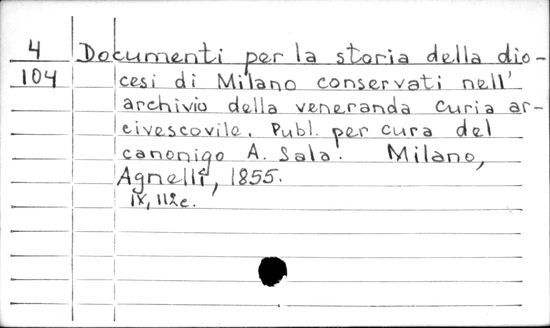 4 Documenti per la storia della dio-
104 cesi di Milano conservati nell'
archivio della veneranda curia ar-
civescovile. Publ. per cura del
canonigo A. Sala. Milano,
Agnelli, 1855.
IX, 112c.